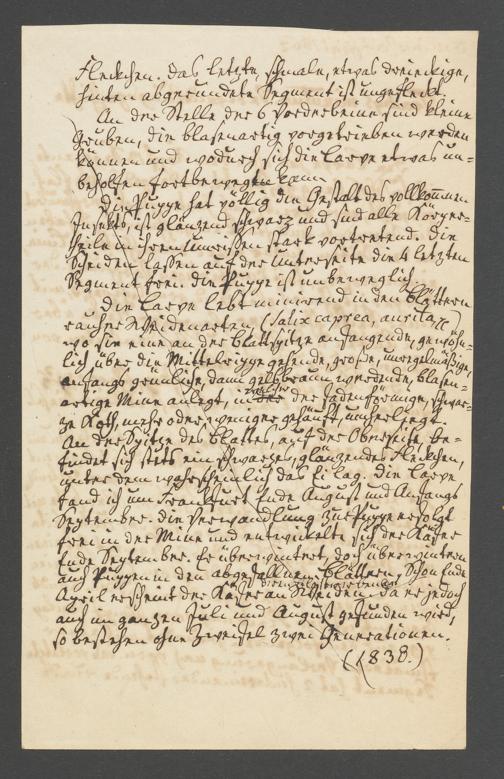 Fleckchen. Das letzte, schmale, etwas dreieckige,
hinten abgerundete Segment ist ungefleckt.
An der Stelle der 6 Vorderbeine sind kleine
Gruben, die blasenartig vorgetrieben werden
können und wodurch sich die Larve etwas un-
beholfen fortbewegen kann
Die Puppe hat völlig die Gestalt des vollkom̅nen
Insekts, ist glänzend schwarz und sind alle Körper-
theile in ihren Umrissen stark vortretend. Die
Scheiden lassen auf der Unterseite die 4 letzten
Segment frei. Die Puppe ist unbeweglich
Die Larve lebt minirend in den Blättern
rauher Weidenarten, (Salix caprea, aurita)
wo sie eine an der Blattspitze anfangende, gewöhn-
lich über die Mittelrippe gehende, große, unregelmäßige,
anfangs grünliche, dann gelbbraun werdende, blasen-
artige Mine anlegt, in welcher der fadenförmige, schwar-
ze Koth, mehr oder weniger gehäuft, umherliegt.
An der Spitze des Blattes, auf der Oberseite, be-
findet sich stets ein schwarzes, glänzendes Fleckchen,
unter dem wahrscheinlich das Ei lag. Die Larve
fand ich um Frankfurt Ende August und Anfangs
September. Die Verwandlung zur Puppe erfolgt
frei in der Mine und entwickelte sich der Käfer
Ende September. Er überwintert, doch überwintern
auch Puppen in den abgefallenen Blättern. Schon Ende
April erscheint der Käfer an Weiden. Da er jedoch
auch im ganzen Juli und August gefunden wird,
so bestehen ohne Zweifel zwei Generationen.
(1838.)